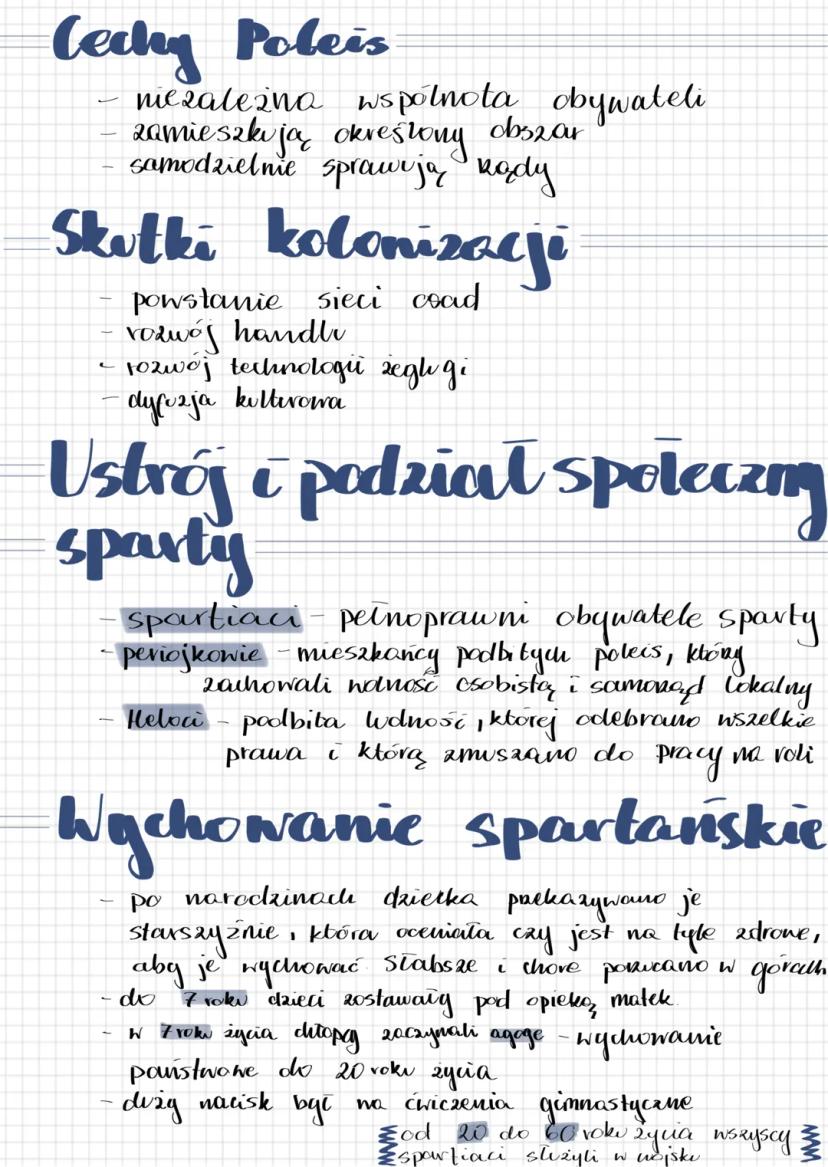 Cechy Poleis
- niezależna wspólnota obywateli
- zamieszkują określony obszar
- samodzielnie sprawują rządy
Skutki kolonizacji
- powstanie sieci osad
- rozwój handlu
- rozwój technologii żeglugi
- dyfuzja kulturowa
Ustrój i podział społeczny
sparty
- spartiaci - pełnoprawni obywatele sparty
- periojkowie - mieszkańcy podbitych poleis, który
zachowali wolność osobistą i samorząd lokalny
- Heloci - podbita ludność, której odebrano wszelkie
prawa i którą zmuszano do pracy na roli
Wychowanie spartańskie
- po narodzinach dziecka przekazywano je
starszyźnie, która oceniała czy jest na tyle zdrowe,
aby je wychować. Słabsze i chore porzucano w górach
- do 7 roku dzieci zostawały pod opieką matek
- w 7 roku życia chłopcy zaczynali agoge - wychowanie
państwowe do 20 roku życia
- duży nacisk był na ćwiczenia gimnastyczne
od 20 do 60 roku życia wszyscy
spartiaci służyli w wojsku